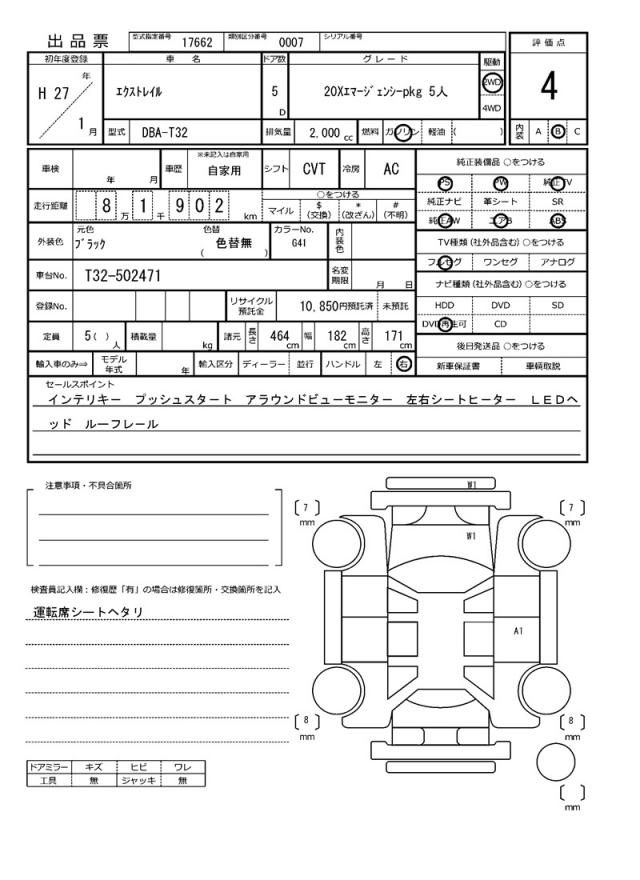 出品票 型式指定番号 17662 類別区分番号 0007 シリアル番号
評価点
4
初年度登録 車名 ドア数 グレード 駆動
H 27 年 1 月
エクストレイル 5 D 20Xエマージェンシーpkg 5人 2WD 4WD
型式 DBA-T32 排気量 2,000 cc 燃料 ガソリン 軽油 ( )
内装 A B C
車検 年 月 車歴 ※未記入は自家用 自家用 シフト CVT 冷房 AC
純正装備品 ○をつける
PS PW 純正TV
純正ナビ 革シート SR
純正AW エアB ABS
走行距離 8 万 1 千 9 0 2 km
○をつける
マイル $(交換) *(改ざん) #(不明)
外装色 元色 ブラック 色替 色替無 ( ) カラーNo. G41 内装色
TV種類(社外品含む)○をつける
フルセグ ワンセグ アナログ
車台No. T32-502471 名変期限 月 日
ナビ種類(社外品含む)○をつける
HDD DVD SD
DVD再生可 CD
登録No. リサイクル預託金 10,850円預託済 未預託
定員 5( )人 積載量 kg 諸元 長さ 464 cm 幅 182 cm 高さ 171 cm
後日発送品 ○をつける
新車保証書 車輌取説
輸入車のみ⇒ モデル年式 年 輸入区分 ディーラー 並行 ハンドル 左 右
セールスポイント
インテリキー プッシュスタート アラウンドビューモニター 左右シートヒーター LEDヘ
ッド ルーフレール
注意事項・不具合箇所
検査員記入欄：修復歴「有」の場合は修復箇所・交換箇所を記入
運転席シートヘタリ
W1
7 mm
7 mm
W1
A1
8 mm
8 mm
mm
ドアミラー キズ ヒビ ワレ
工具 無 ジャッキ 無